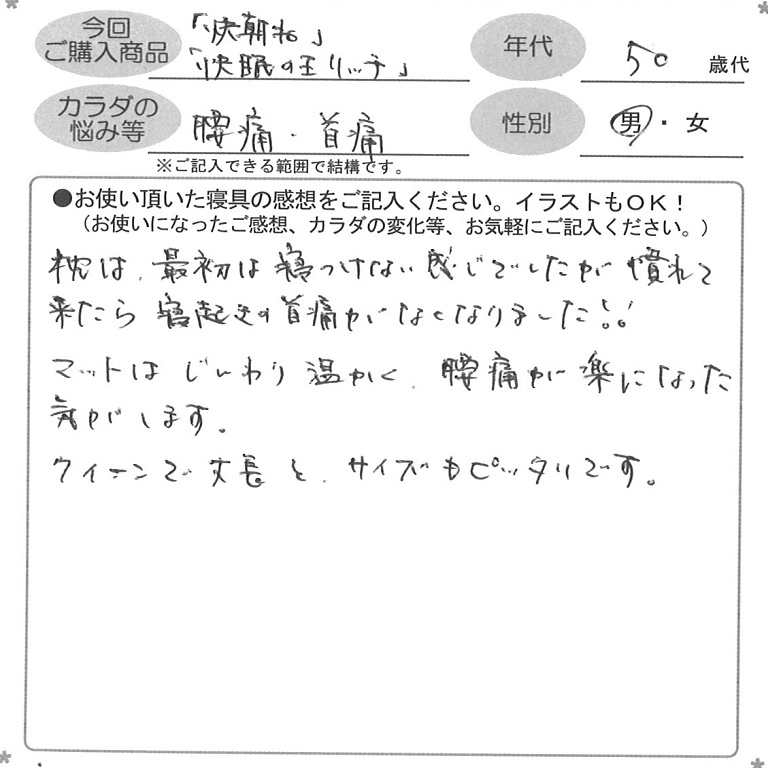 今回
ご購入商品
「快朝枕」
「快眠の王リッチ」
年代
50 歳代
カラダの
悩み等
腰痛・首痛
※ご記入できる範囲で結構です。
性別
男・女
●お使い頂いた寝具の感想をご記入ください。イラストもOK！
（お使いになったご感想、カラダの変化等、お気軽にご記入ください。）
枕は、最初は寝つけない感じでしたが慣れて
来たら寝起きの首痛がなくなりました!!
マットはじんわり温かく、腰痛が楽になった
気がします。
クイーンで丈長と、サイズもピッタリです。